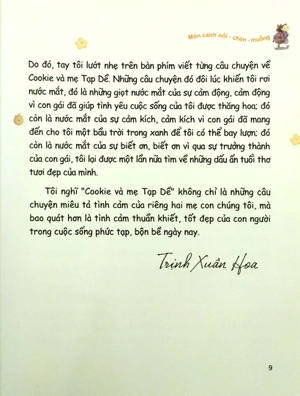 Món canh nồi - chén - muỗng
Do đó, tay tôi lướt nhẹ trên bàn phím viết từng câu chuyện về
Cookie và mẹ Tạp Dề. Những câu chuyện đó đôi lúc khiến tôi rơi
nước mắt, đó là những giọt nước mắt của sự cảm động, cảm động
vì con gái đã giúp tình yêu cuộc sống của tôi được thăng hoa; đó
còn là nước mắt của sự cảm kích, cảm kích vì con gái đã mang
đến cho tôi một bầu trời trong xanh để tôi có thể bay lượn; đó
còn là nước mắt của sự biết ơn, biết ơn vì qua sự trưởng thành
của con gái, tôi lại được một lần nữa tìm về những dấu ấn tuổi thơ
tươi đẹp của mình.
Tôi nghĩ "Cookie và mẹ Tạp Dề" không chỉ là những câu
chuyện miêu tả tình cảm của riêng hai mẹ con chúng tôi, mà
bao quát hơn là tình cảm thuần khiết, tốt đẹp của con người
trong cuộc sống phức tạp, bộn bề ngày nay.
Trịnh Xuân Hoa
9